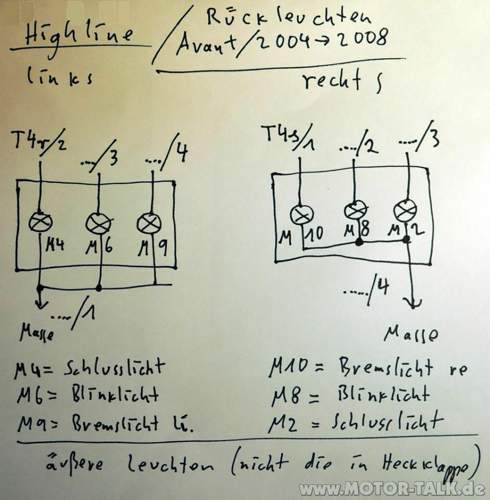 Highline / Rückleuchten
Avant/2004→2008
links
rechts
T4r/2 ..../3 ..../4
M4 M6 M9
..../1
Masse
T4s/1 ..../2 ..../3
M10 M8 M2
...../4
Masse
M4= Schlusslicht
M6= Blinklicht
M9= Bremslicht li.
M10= Bremslicht re
M8= Blinklicht
M2= Schlusslicht
äußere Leuchten (nicht die in Heckklappe)
www.MOTOR-TALK.de